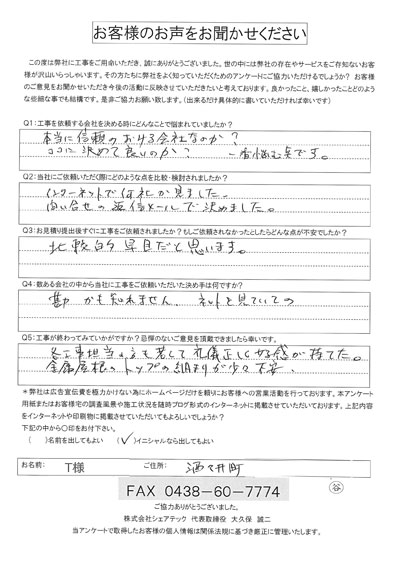 お客様のお声をお聞かせください
この度は弊社に工事をご用命いただき、誠にありがとうございました。世の中には弊社の存在やサービスをご存知ないお客
様が沢山いらっしゃいます。その方たちに弊社をよく知っていただくためのアンケートにご協力いただけるでしょうか? お客様
のご意見をお聞かせいただき今後の活動に反映させていただきたいと考えております。良かったこと、嬉しかったことどのよう
な些細な事でも結構です。是非ご協力お願い致します。(出来るだけ具体的に書いていただければ幸いです)
Q1:工事を依頼する会社を決める時にどんなことで悩まれていましたか?
本当に信頼のおける会社なのか?
ココに決めて良いのか? 一番悩む点です。
Q2:当社にご依頼いただく際にどのような点を比較・検討されましたか?
インターネットで何社か見ました。
問い合せの返信メールで決めました。
Q3:お見積り提出後すぐに工事をご依頼されましたか?もしご依頼されなかったとしたらどんな点が不安でしたか?
比較的早目だと思います。
Q4:数ある会社の中から当社に工事をご依頼いただいた決め手は何ですか?
勘かも知れません。 ネットを見ていての
Q5:工事が終わってみていかがですか?忌憚のないご意見を頂戴できましたら幸いです。
各工事担当の方も若くて礼儀正しく好感が持てた。
金属屋根のトップの納まりが少々不安。
*弊社は広告宣伝費を極力かけない為にホームページだけを頼りにお客様への営業活動を行っております。本アンケート
用紙またはお客様宅の調査風景や施工状況を随時ブログ形式のインターネットに掲載させていただいております。上記内容
をインターネットや印刷物に掲載させていただいてもよろしいでしょうか?
下記の中から○印をお付下さい。
( )名前を出してもよい (✓)イニシャルなら出してもよい
お名前: T様 ご住所: 酒々井町
FAX 0438-60-7774
谷
ご協力ありがとうございました。
株式会社シェアテック 代表取締役 大久保 誠二
当アンケートで取得したお客様の個人情報は関係法規に基づき厳正に管理いたします。